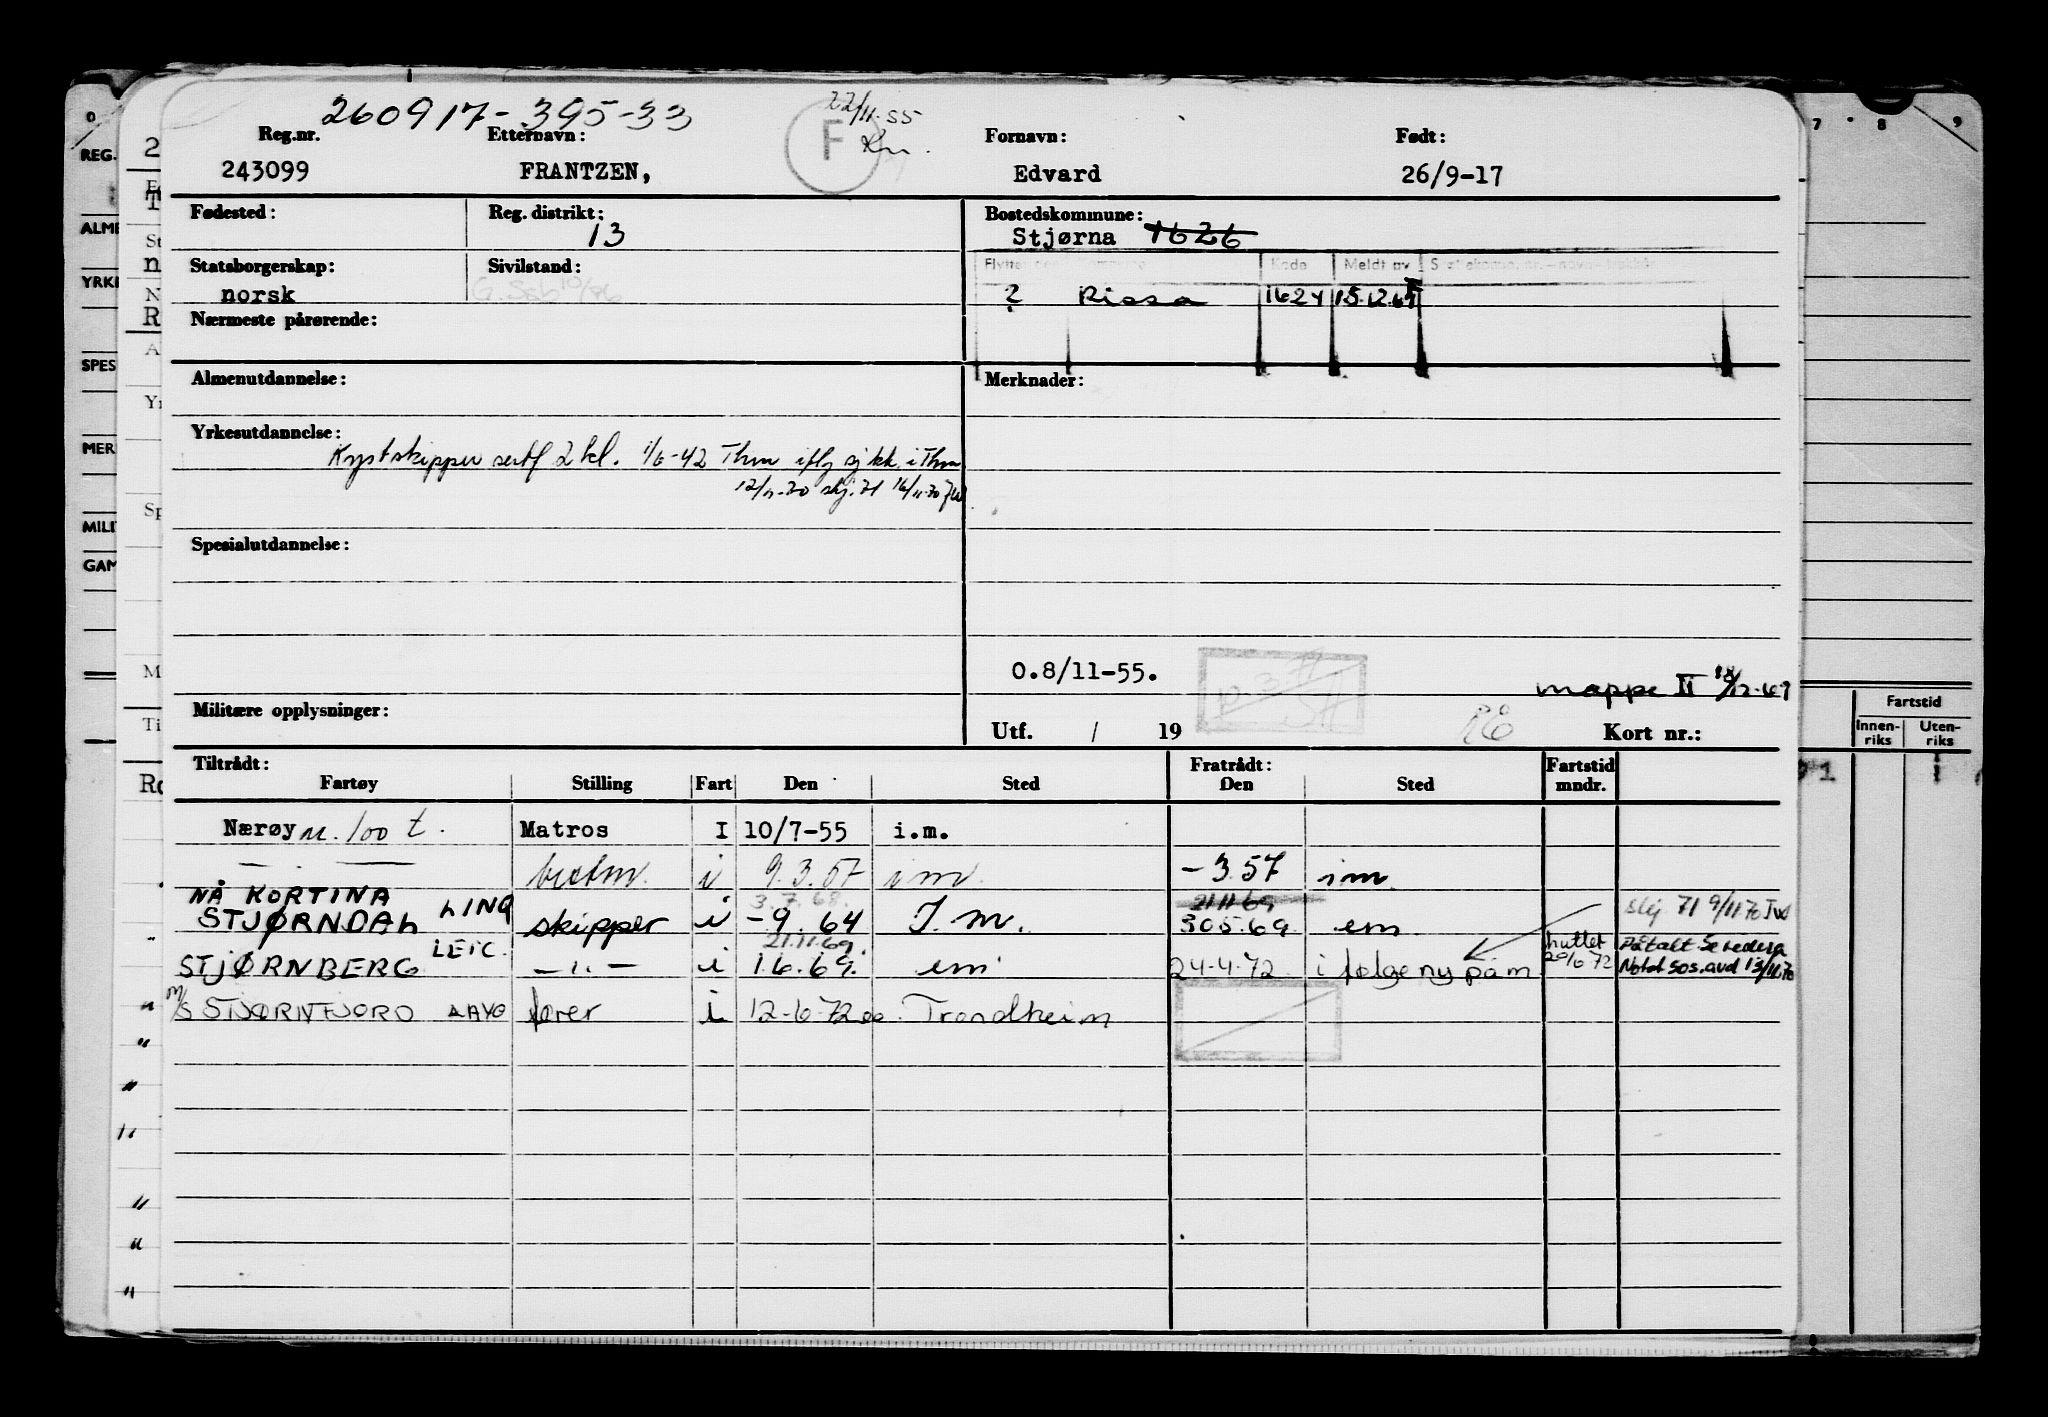 260917-395-33
22/11-55
Reg.nr. Etternavn: F Fornavn: Født:
243099 FRANTZEN, Edvard 26/9-17
Fødested: Reg. distrikt: 13 Bostedskommune:
Stjørna 1626
Statsborgerskap: Sivilstand: Kode Meldt av
norsk ? Rissa 1624 15.12.69
Nærmeste pårørende:
Almenutdannelse: Merknader:
Yrkesutdannelse:
Kystskipper sertf 2 kl. 1/6-42 Thm iflg sj kk. i Thm
12/11-70 skj. 71 16/11-70
Spesialutdannelse:
O.8/11-55.
mappe II
Militære opplysninger: Utf. / 19 Kort nr.:
Tiltrådt: Fratrådt: Fartstid
Fartøy Stilling Fart Den Sted Den Sted mndr.
Nærøy m. 100 t. Matros I 10/7-55 i.m.
i 9.3.57 i m -3.57 im
NÅ KORTINA 3.7.68. 21.11.69
STJØRNDAL LINQ skipper i -9 64 I.m. 30.5.69 em skj 71 9/11 70
LEIC. 21.11.69.
STJØRNBERG - " - i 1.6.69. em 24-4-72 i følge ny påm 20/6 72 Påtalt
Notat sos.avd 13/11.70
M/S STJØRNFJORD AAVG fører i 12-6-72 Trondheim
REG.
ALME
YRKE
SPES
MER
MILI
GAM
7 8 9
Fartstid
Innen-riks Uten-riks